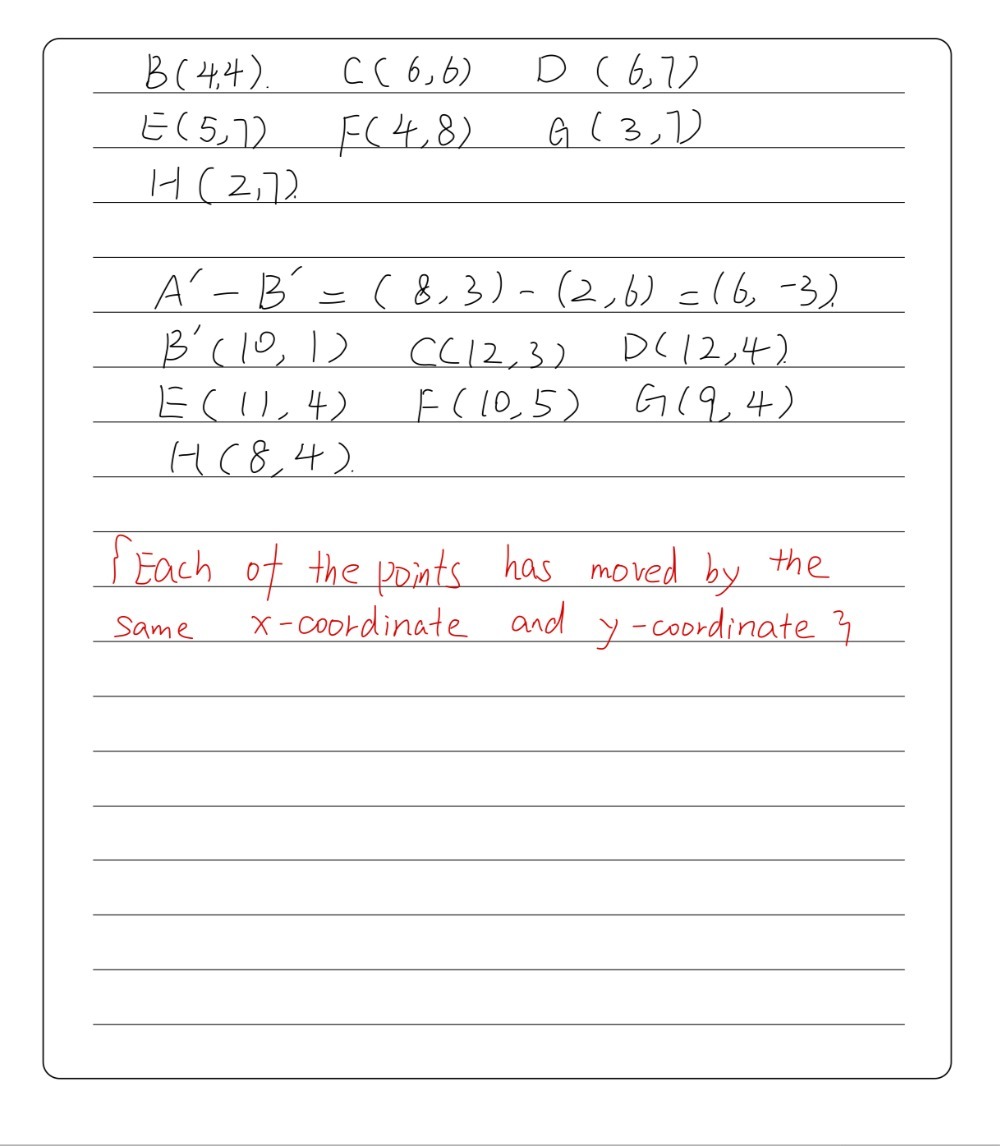 B(4,4). C(6,6) D(6,7)
E(5,7) F(4,8) G(3,7)
H(2,7).
A′-B′=(8,3)-(2,6)=(6,-3).
B′(10,1) C(12,3) D(12,4).
E(11,4) F(10,5) G(9,4)
H(8,4).
{Each of the points has moved by the
same x-coordinate and y-coordinate}